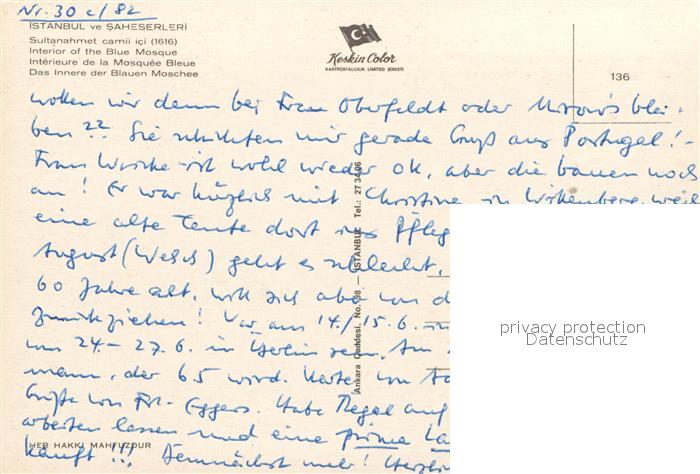 Nr. 30 c/82
İSTANBUL ve ŞAHESERLERİ
Sultanahmet camii içi (1616)
Interior of the Blue Mosque
Intérieure de la Mosquée Bleue
Das Innere der Blauen Moschee
Keskin Color
KARTPOSTALCILIK LIMITED ŞİRKETİ
136
wollen wir denn bei Frau Oberfeldt oder blei-
ben?? Sie schickten mir gerade Gruß aus Portugal! -
Frau ist wohl wieder OK, aber die bauen noch
an! Er war kürzlich mit Christine in Wittenberg, weil
eine alte Tante dort ins Pfleg
August (Welsch) geht es schlecht,
60 Jahre alt, will sich aber von d
zurückziehen! War am 14./15.6. in
um 24. - 27.6. in Berlin sein. Am
mann, der 65 wird. Karte von
Grüße von Fr. Eggers. Habe Regal auf
arbeiten lassen und eine prima La
kauft!!! Demnächst mehr! Herzl
Ankara Caddesi, No. 98 — İSTANBUL Tel.: 27 34 06
HER HAKKI MAHFUZDUR
privacy protection
Datenschutz